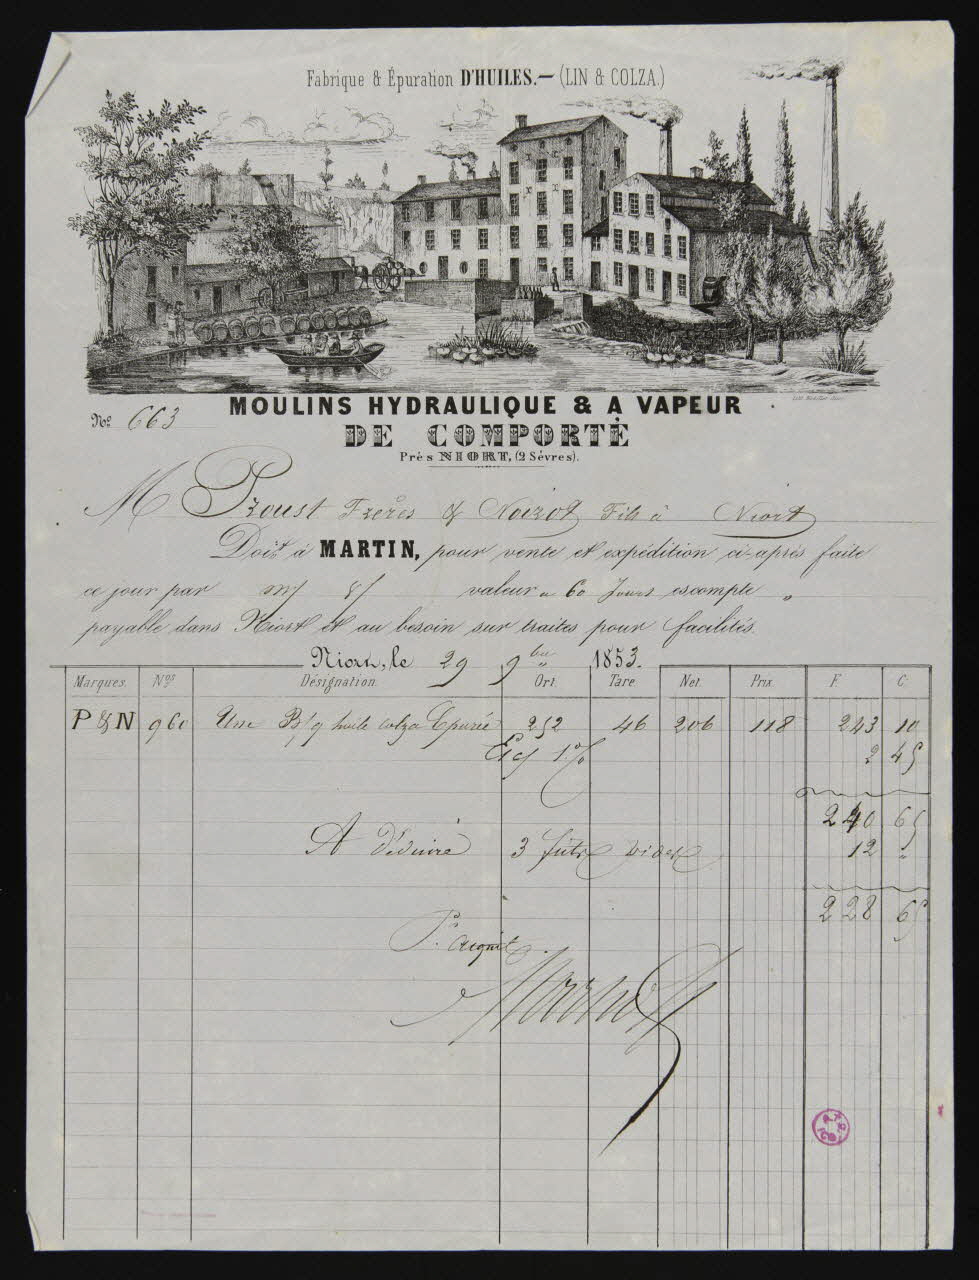 Fabrique & Épuration D'HUILES.— (LIN & COLZA.)
MOULINS HYDRAULIQUE & A VAPEUR
No. 663
DE COMPORTÉ
Près NIORT, (2 Sèvres).
M Proust Frères & Noizot Fils à Niort
Doit à MARTIN, pour vente et expédition ci-après faite
ce jour par m/ s/ valeur à 60 Jours escompte "
payable dans Niort et au besoin sur traites pour facilités.
Niort, le 29 9bre 1853.
Marques. Nos Désignation. Ort. Tare. Net. Prix. F. C.
P & N 960 Une B/q huile colza Epurée 252 46 206 118 243 10
Esc 1 % 2 45
240 65
A déduire 3 futs vides 12 "
228 65
Pr acquit
Martin